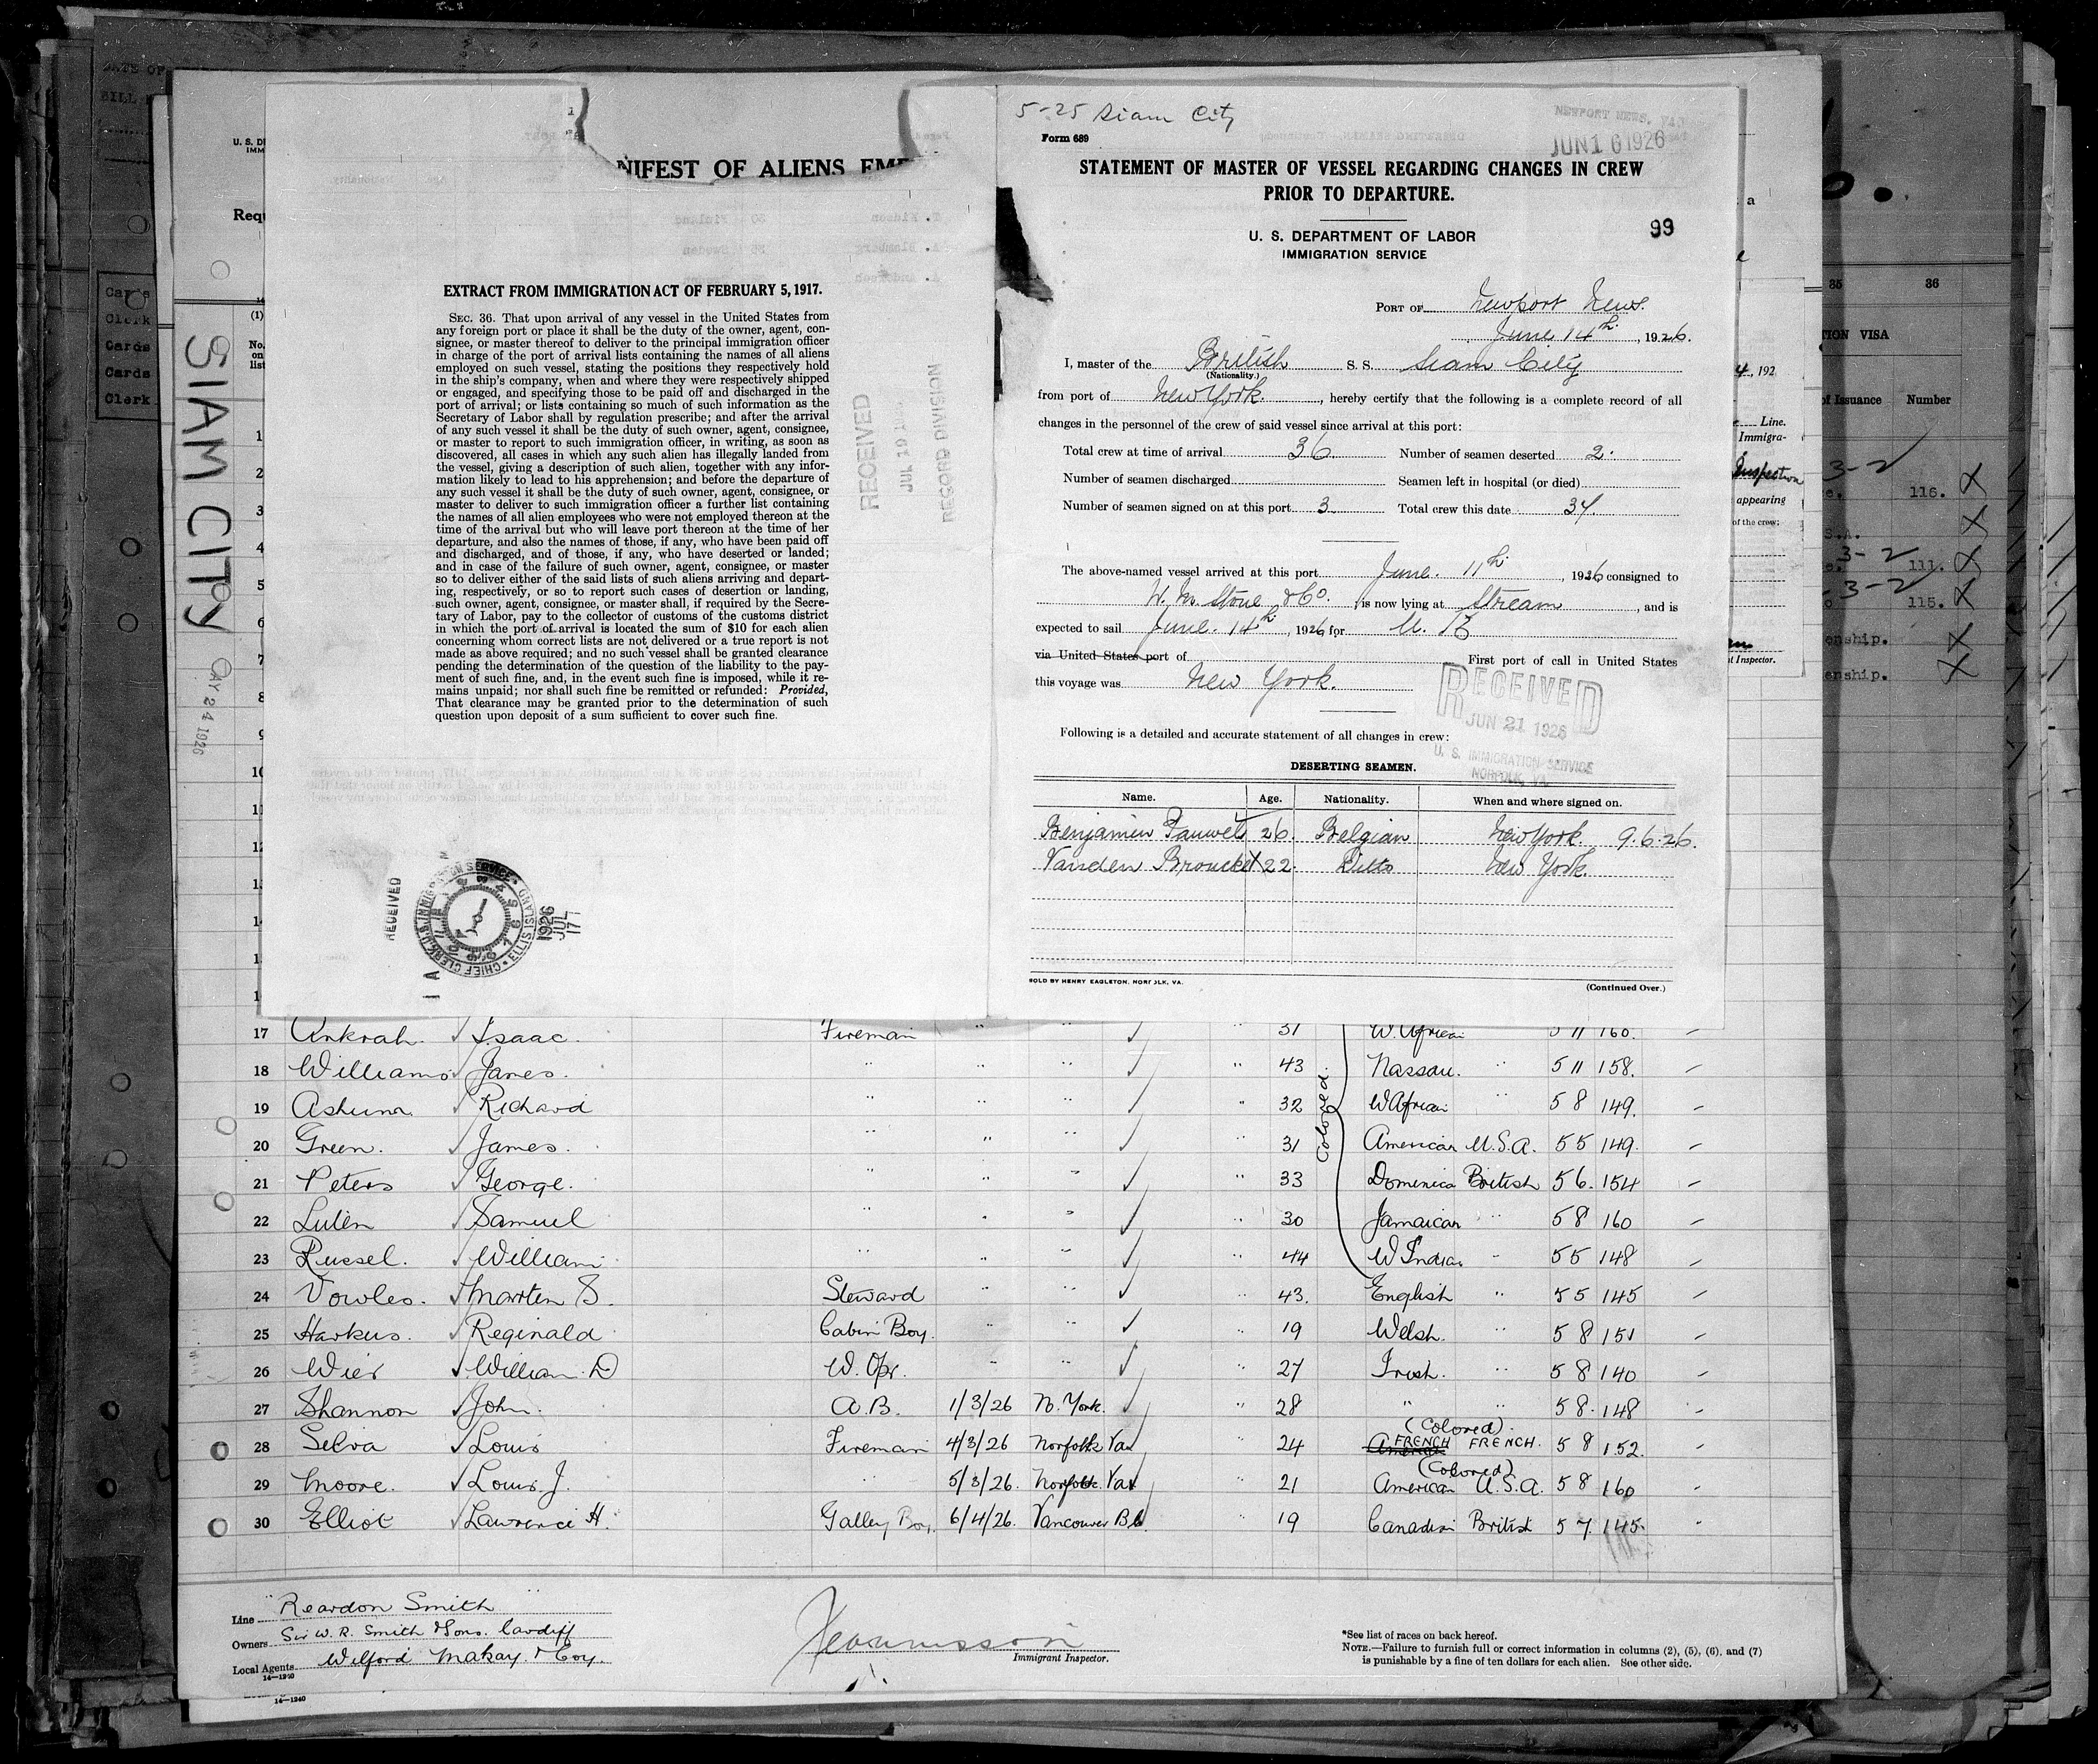 DATE OF
BILL
Cards
Clerk
Cards
Cards
Clerk
SIAM CITY
MAY 24 1926
U. S. DE
IMM
Requ
(1)
No.
on
list
1
2
3
4
5
6
7
8
9
10
11
12
NIFEST OF ALIENS EMP
EXTRACT FROM IMMIGRATION ACT OF FEBRUARY 5, 1917.
SEC. 36. That upon arrival of any vessel in the United States from
any foreign port or place it shall be the duty of the owner, agent, con-
signee, or master thereof to deliver to the principal immigration officer
in charge of the port of arrival lists containing the names of all aliens
employed on such vessel, stating the positions they respectively hold
in the ship's company, when and where they were respectively shipped
or engaged, and specifying those to be paid off and discharged in the
port of arrival; or lists containing so much of such information as the
Secretary of Labor shall by regulation prescribe; and after the arrival
of any such vessel it shall be the duty of such owner, agent, consignee,
or master to report to such immigration officer, in writing, as soon as
discovered, all cases in which any such alien has illegally landed from
the vessel, giving a description of such alien, together with any infor-
mation likely to lead to his apprehension; and before the departure of
any such vessel it shall be the duty of such owner, agent, consignee, or
master to deliver to such immigration officer a further list containing
the names of all alien employees who were not employed thereon at the
time of the arrival but who will leave port thereon at the time of her
departure, and also the names of those, if any, who have been paid off
and discharged, and of those, if any, who have deserted or landed;
and in case of the failure of such owner, agent, consignee, or master
so to deliver either of the said lists of such aliens arriving and depart-
ing, respectively, or so to report such cases of desertion or landing,
such owner, agent, consignee, or master shall, if required by the Secre-
tary of Labor, pay to the collector of customs of the customs district
in which the port of arrival is located the sum of $10 for each alien
concerning whom correct lists are not delivered or a true report is not
made as above required; and no such vessel shall be granted clearance
pending the determination of the question of the liability to the pay-
ment of such fine, and, in the event such fine is imposed, while it re-
mains unpaid; nor shall such fine be remitted or refunded: Provided,
That clearance may be granted prior to the determination of such
question upon deposit of a sum sufficient to cover such fine.
RECEIVED
JUL 19
RECORD DIVISION
RECEIVED
CHIEF CLERK U.S. IMMIGRATION SERVICE ELLIS ISLAND
1926
JUL
17
5-25 Siam City
NEWPORT NEWS, VA.
JUN 16 1926
Form 689
STATEMENT OF MASTER OF VESSEL REGARDING CHANGES IN CREW
PRIOR TO DEPARTURE.
99
U. S. DEPARTMENT OF LABOR
IMMIGRATION SERVICE
PORT OF Newport News.
June 14th, 1926.
I, master of the British S. S. Siam City
(Nationality.)
from port of New York., hereby certify that the following is a complete record of all
changes in the personnel of the crew of said vessel since arrival at this port:
Total crew at time of arrival 36. Number of seamen deserted 2.
Number of seamen discharged Seamen left in hospital (or died)
Number of seamen signed on at this port 3 Total crew this date 34.
The above-named vessel arrived at this port June. 11th, 1926 consigned to
W. M. Stone & Co., is now lying at Stream, and is
expected to sail June. 14th, 1926 for U. K
via United States port of First port of call in United States
this voyage was New York.
RECEIVED
JUN 21 1926
U. S. IMMIGRATION SERVICE
NORFOLK, VA.
Following is a detailed and accurate statement of all changes in crew:
DESERTING SEAMEN.
Name. Age. Nationality. When and where signed on.
Benjamin Pauwels 26. Belgian New York 9.6.26.
Vanden Broucke 22. Ditto New York.
SOLD BY HENRY EAGLETON, NORFOLK, VA.
(Continued Over.)
a
4, 192
Line.
Immigra-
Inspection
appearing
of the crew:
t Inspector.
35 36
TION VISA
of Issuance Number
3-2
116. X
S.A. X
3-2
111. X
3-2
115. X
enship. X
enship. X
17 Ankrah. Isaac. Fireman " " " 31 W. African 5 11 160.
18 Williams James. " " " " 43 Nassau. " 5 11 158.
19 Ashuma Richard " " " " 32 W African " 5 8 149.
Colored.
20 Green. James. " " " " 31 American U.S.A. 5 5 149.
21 Peters George. " " " " 33 Dominica British 5 6. 154
22 Lulen Samuel " " " " 30 Jamaican " 5 8 160
23 Russel. William " " " " 44 W Indian " 5 5 148
24 Vowles. Marten S. Steward " " " 43. English " 5 5 145
25 Harkus. Reginald Cabin Boy. " " " 19 Welsh. " 5 8 151
26 Wier William D W. Opr. " " " 27 Irish. " 5 8 140
27 Shannon John. A.B. 1/3/26 N. York. " 28 " " 5 8. 148
(Colored).
28 Selva Louis Fireman 4/3/26 Norfolk Va " 24 American FRENCH FRENCH. 5 8 152.
(Colored)
29 Moore. Louis J. " 5/3/26. Norfolk Va " 21 American U.S.A. 5 8 160
30 Elliot Lawrence H. Galley Boy. 6/4/26. Vancouver B.C. " 19 Canadian British 5 7. 145.
Line "Reardon Smith"
Owners Sir W. R. Smith & Sons. Cardiff
Local Agents Wilford Makay. & Coy.
14—1240
14—1240
Immigrant Inspector.
*See list of races on back hereof.
NOTE.—Failure to furnish full or correct information in columns (2), (5), (6), and (7)
is punishable by a fine of ten dollars for each alien. See other side.